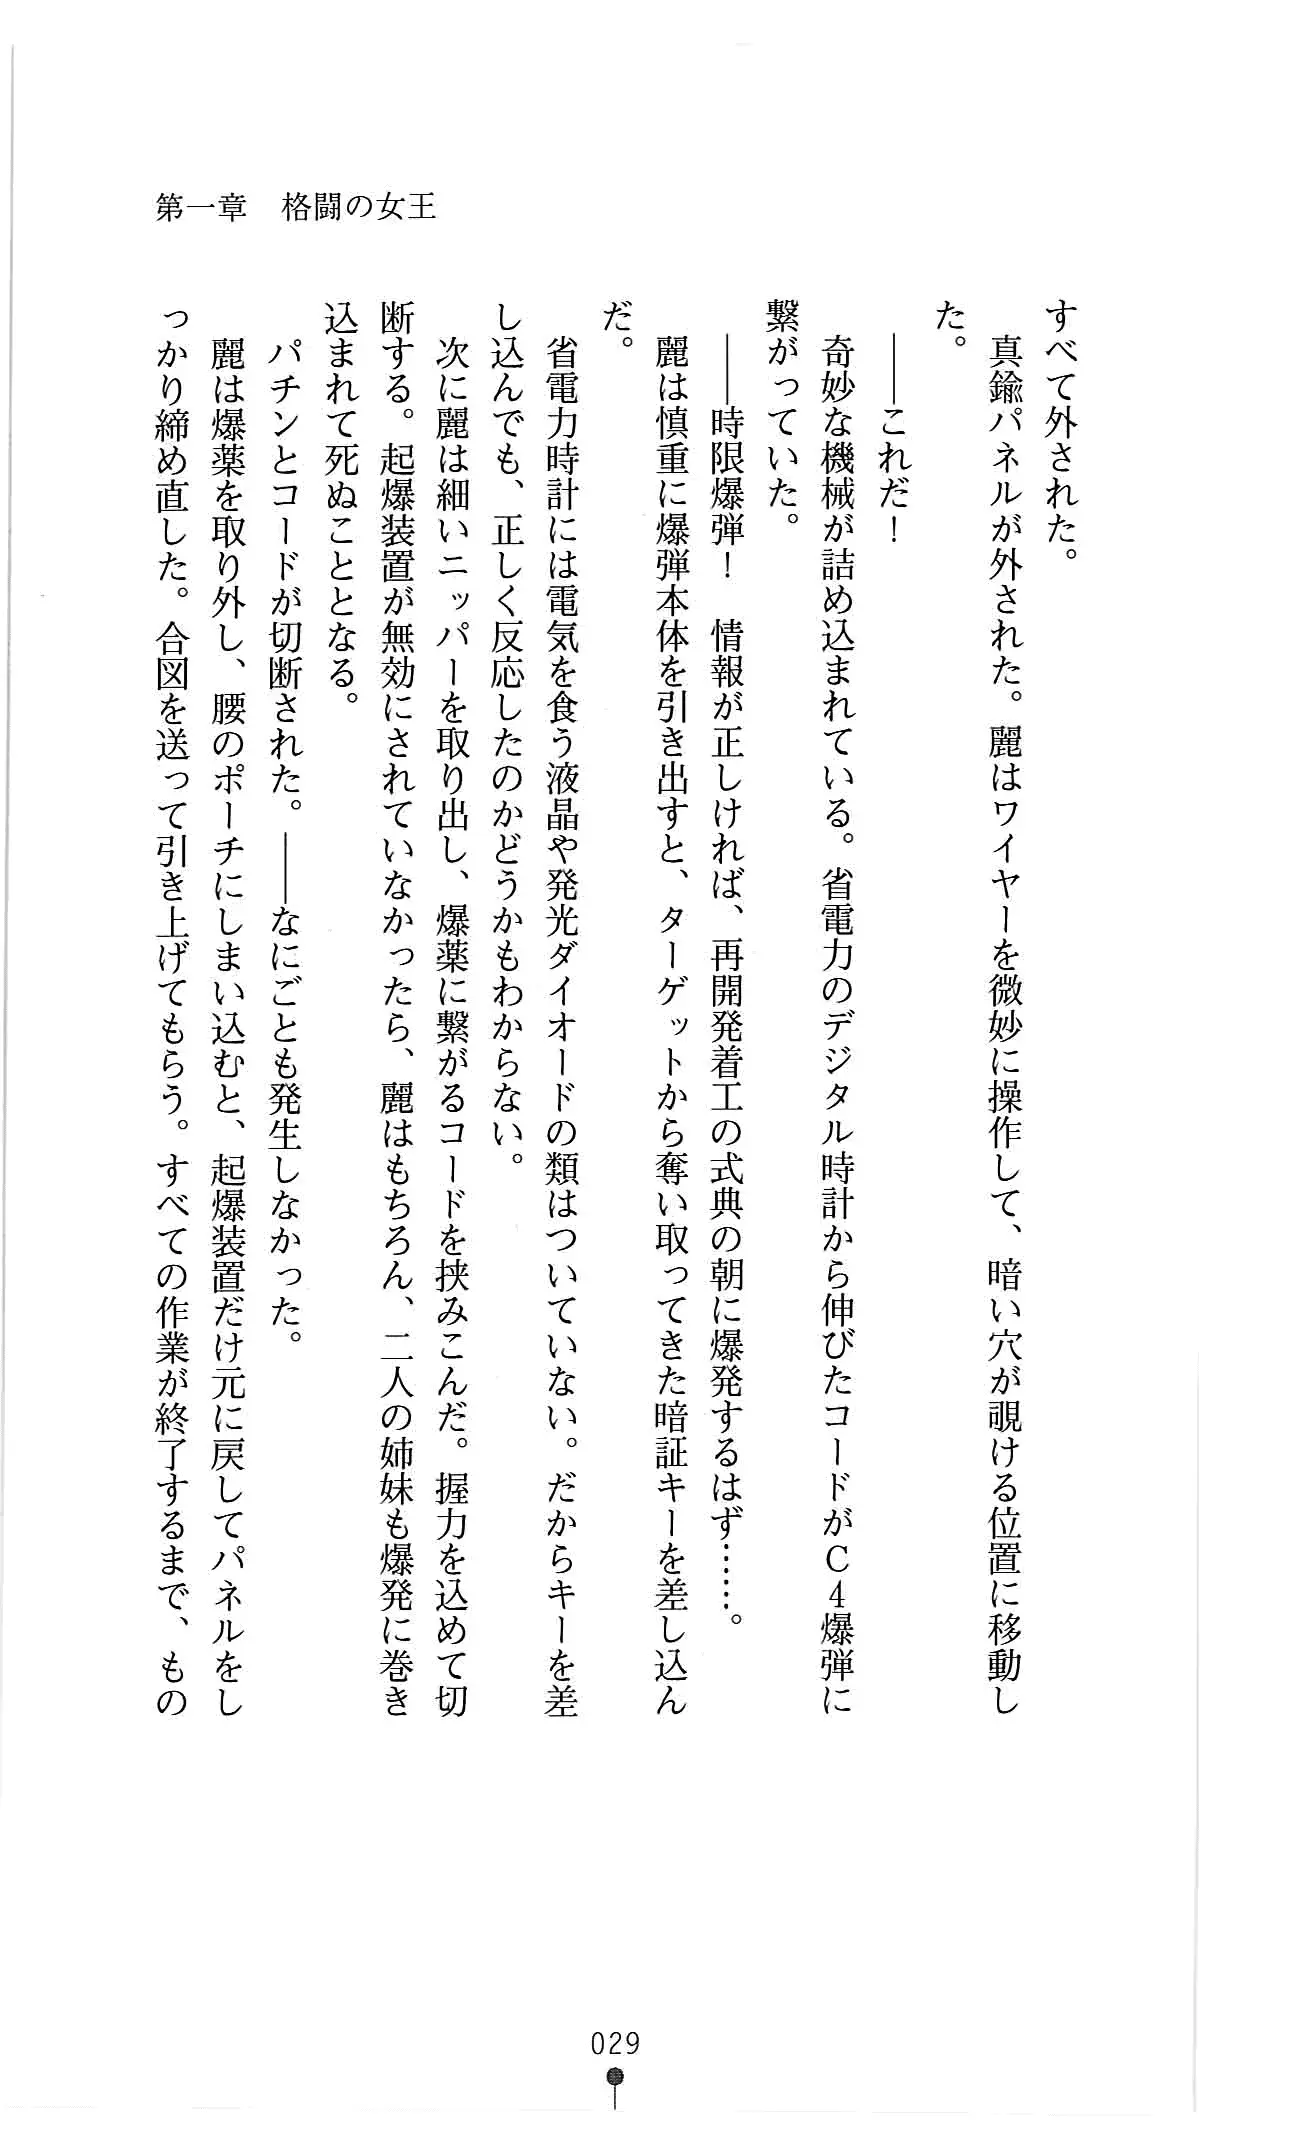 第一章　格闘の女王
すべて外された。
　真鍮パネルが外された。麗はワイヤーを微妙に操作して、暗い穴が覗ける位置に移動し
た。
　――これだ！
　奇妙な機械が詰め込まれている。省電力のデジタル時計から伸びたコードがC4爆弾に
繋がっていた。
　――時限爆弾！　情報が正しければ、再開発着工の式典の朝に爆発するはず……。
　麗は慎重に爆弾本体を引き出すと、ターゲットから奪い取ってきた暗証キーを差し込ん
だ。
　省電力時計には電気を食う液晶や発光ダイオードの類はついていない。だからキーを差
し込んでも、正しく反応したのかどうかもわからない。
　次に麗は細いニッパーを取り出し、爆薬に繋がるコードを挟みこんだ。握力を込めて切
断する。起爆装置が無効にされていなかったら、麗はもちろん、二人の姉妹も爆発に巻き
込まれて死ぬこととなる。
　パチンとコードが切断された。――なにごとも発生しなかった。
　麗は爆薬を取り外し、腰のポーチにしまい込むと、起爆装置だけ元に戻してパネルをし
っかり締め直した。合図を送って引き上げてもらう。すべての作業が終了するまで、もの
029